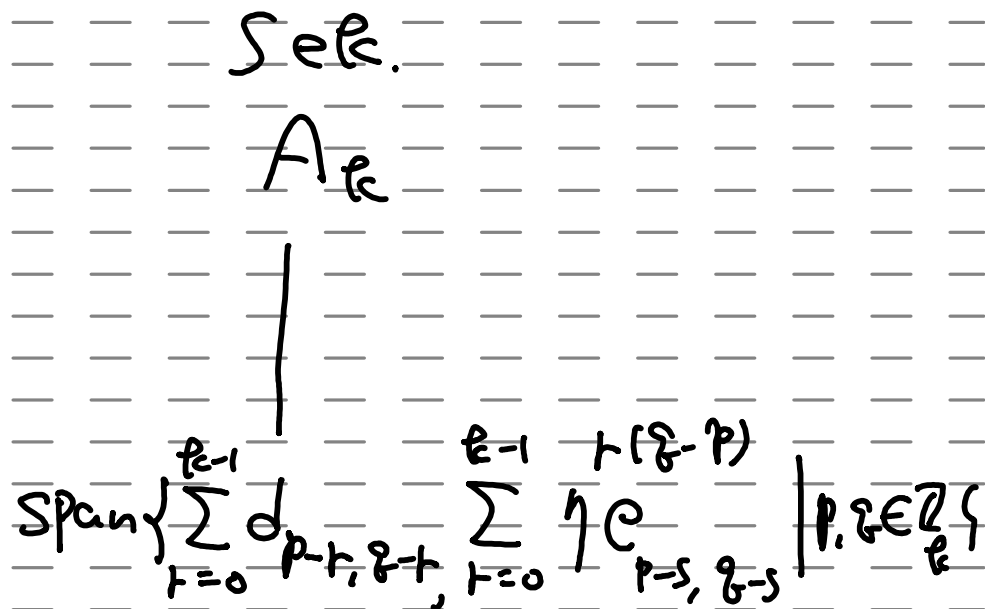 Sek.
A_k
|
span{∑_{r=0}^{k-1} d_{p-r, q-r}, ∑_{r=0}^{k-1} η^{r(q-p)} e_{p-s, q-s} | p, q ∈ ℤ_k}